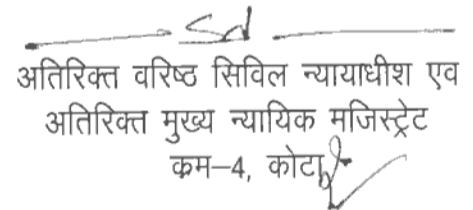 Sd
अतिरिक्त वरिष्ठ सिविल न्यायाधीश एव
अतिरिक्त मुख्य न्यायिक मजिस्ट्रेट
कम–4, कोटा